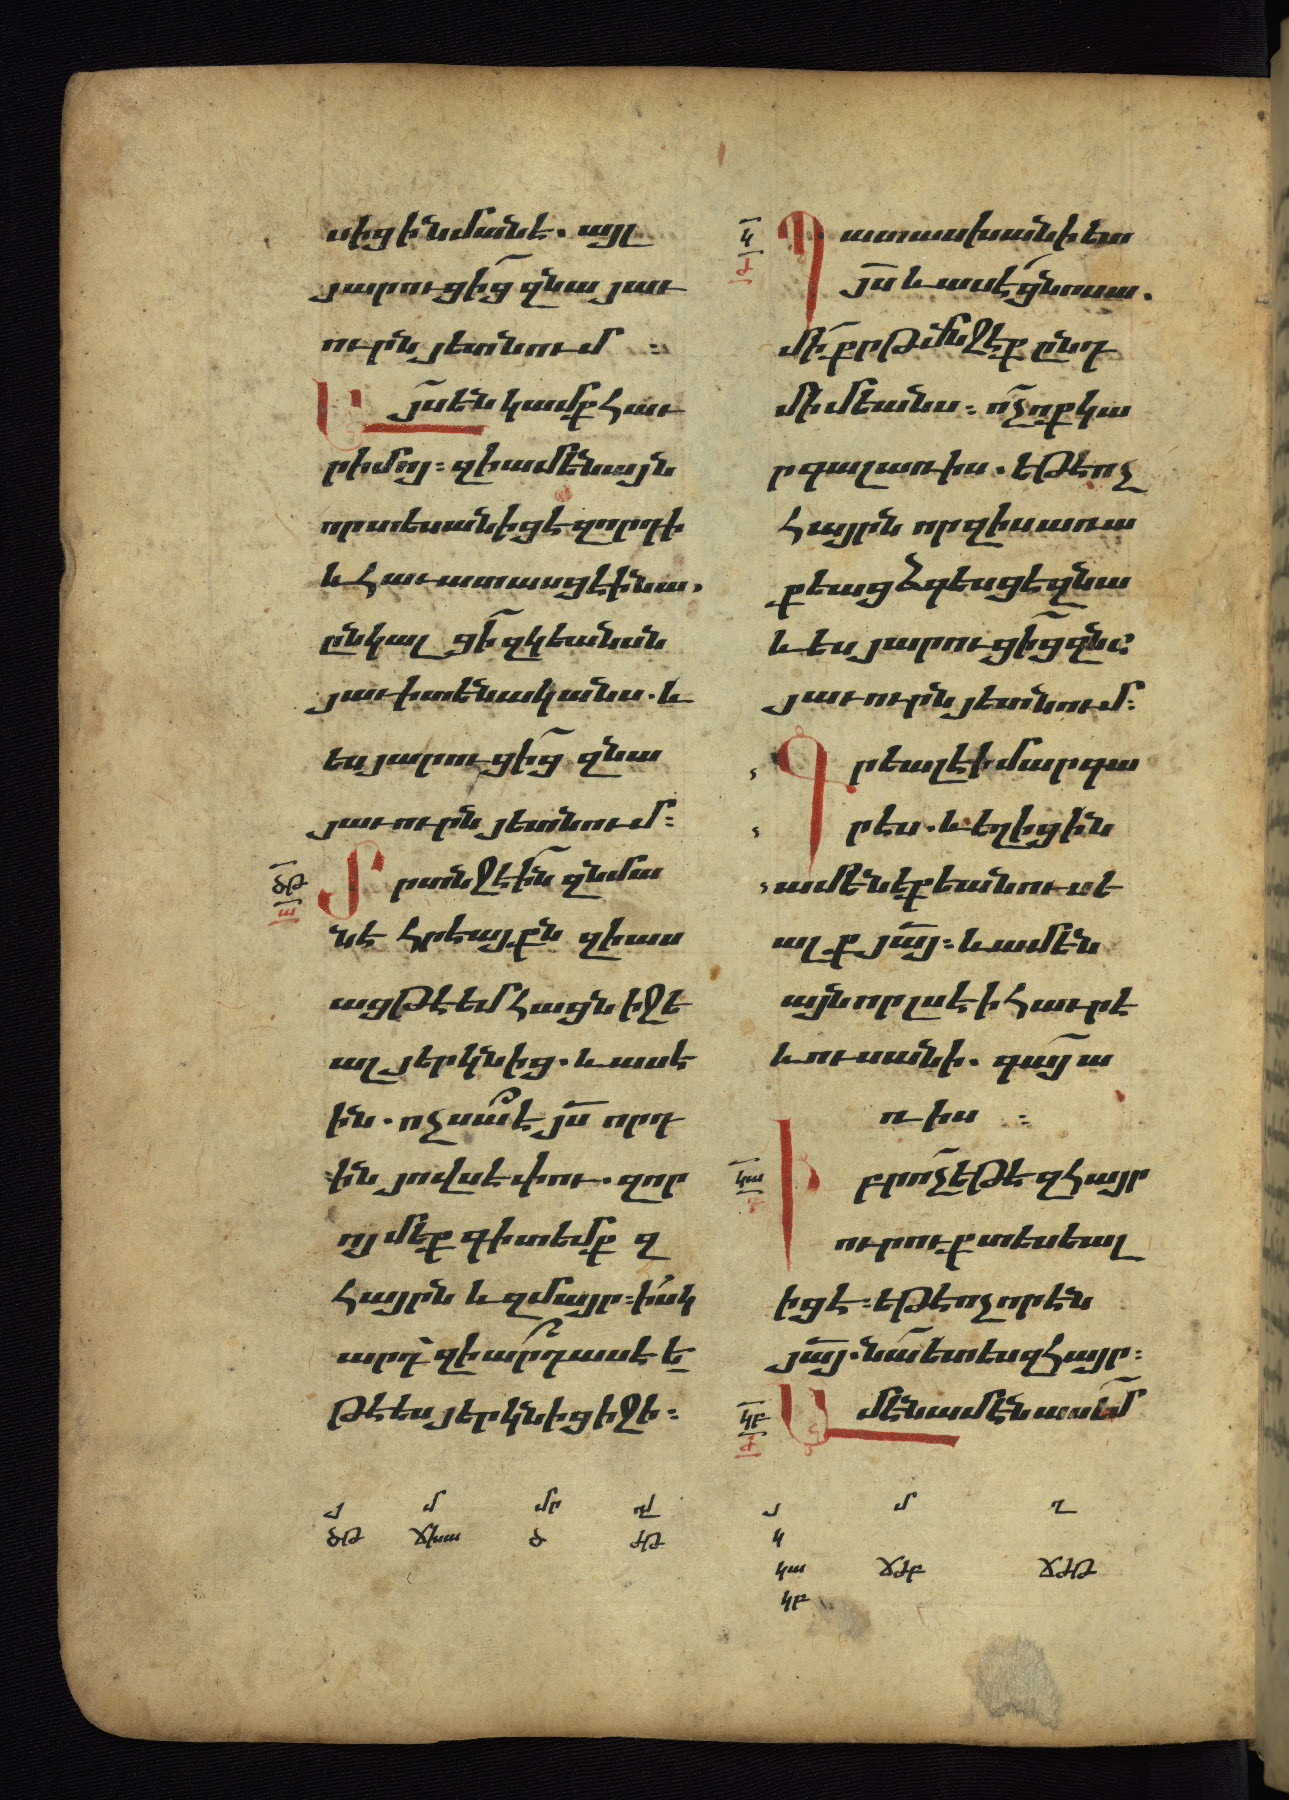 սիցի նմանէ. այլ
յարուցից զնա յաւ
ուրն յետնում :
Այս են կամք հաւ
րիմոյ: զի ամենայն
որ տեսանիցէ զորդի
և հաւատասցէ ի նա.
ընկալցի զկեանսն
յաւիտենականս. և
ես յարուցից զնա
յաւուրն յետնում:
ծթ
ա
Տրտնջէին զնմա
նէ հրեայքն զի աս
աց թէ եմ հացն իջե
ալ յերկնից. և ասէ
ին. ոչ սա է յս որդ
ին յովսէփու. զոր
ոյ մեք գիտեմք զ
հայրն և զմայր: իսկ
արդ զիարդ ասէ ե
թէ ես յերկնից իջի:
կ
ժ
Պատասխանի ետ
յս և ասէ ցնոսա.
մի քրթմնջէք ընդ
միմեանս: ոչ ոք կա
ր գալ առ իս. եթե ոչ
հայրն որ զիս առա
քեաց ձգեսցէ զնա
և ես յարուցից զնա
յաւուրն յետնում:
Գրեալ է ի մարգա
րէս. և եղիցին
ամենեքեան ուսե
ալք յայ: և ամեն
այն որ լսէ ի հաւրէ
և ուսանի. գայ ա
ռ իս :
կա
Իբր ոչ եթե զհայր
ուրուք տեսեալ
իցէ: եթէ ոչ որ էն
յայ. նա ետես զհայր:
կբ
ժ
Ամէն ամէն ասեմ
յ մ մր
ծթ ճխա ծ ժթ
յ մ ղ
կ
կա ճժբ ճժթ
կբ